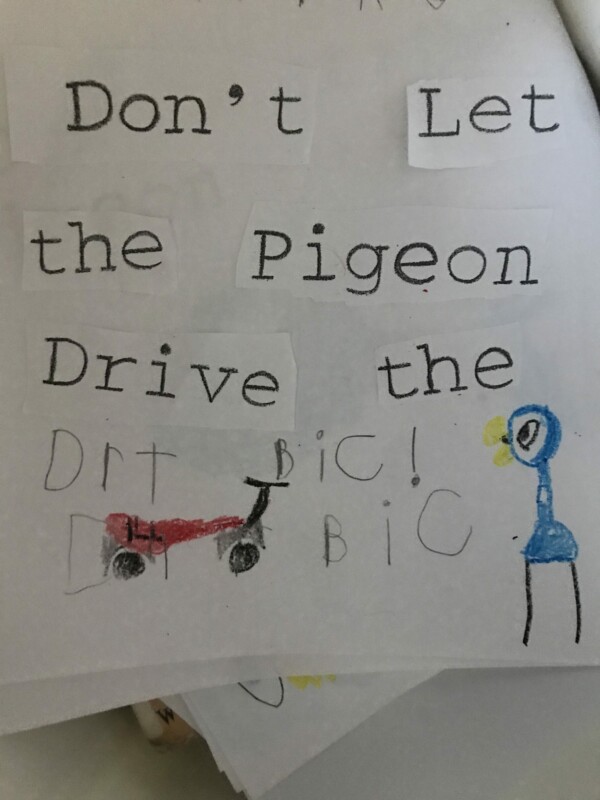 Don't Let
the Pigeon
Drive the
Drt BiC!
BiC
14
W